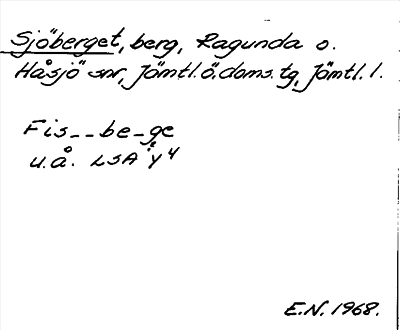 Sjöberget, berg, Ragunda o.
Håsjö snr, Jämtl.ö.doms.tg, Jämtl. l.
Fis--be-ge
u.å. LSA Y4
E.N. 1968.